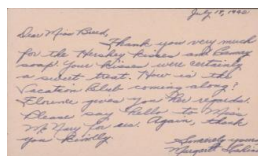 July 18, 1960
Dear Miss Bird,
Thank you very much
for the Hershey kisses and
soap. Your kisses were certainly
a sweet treat. How is the
Vacation Club coming along?
Florence gives you her regards.
Please say hello to Miss
for me. Again, thank
you kindly.
Sincerely yours,
Margaret